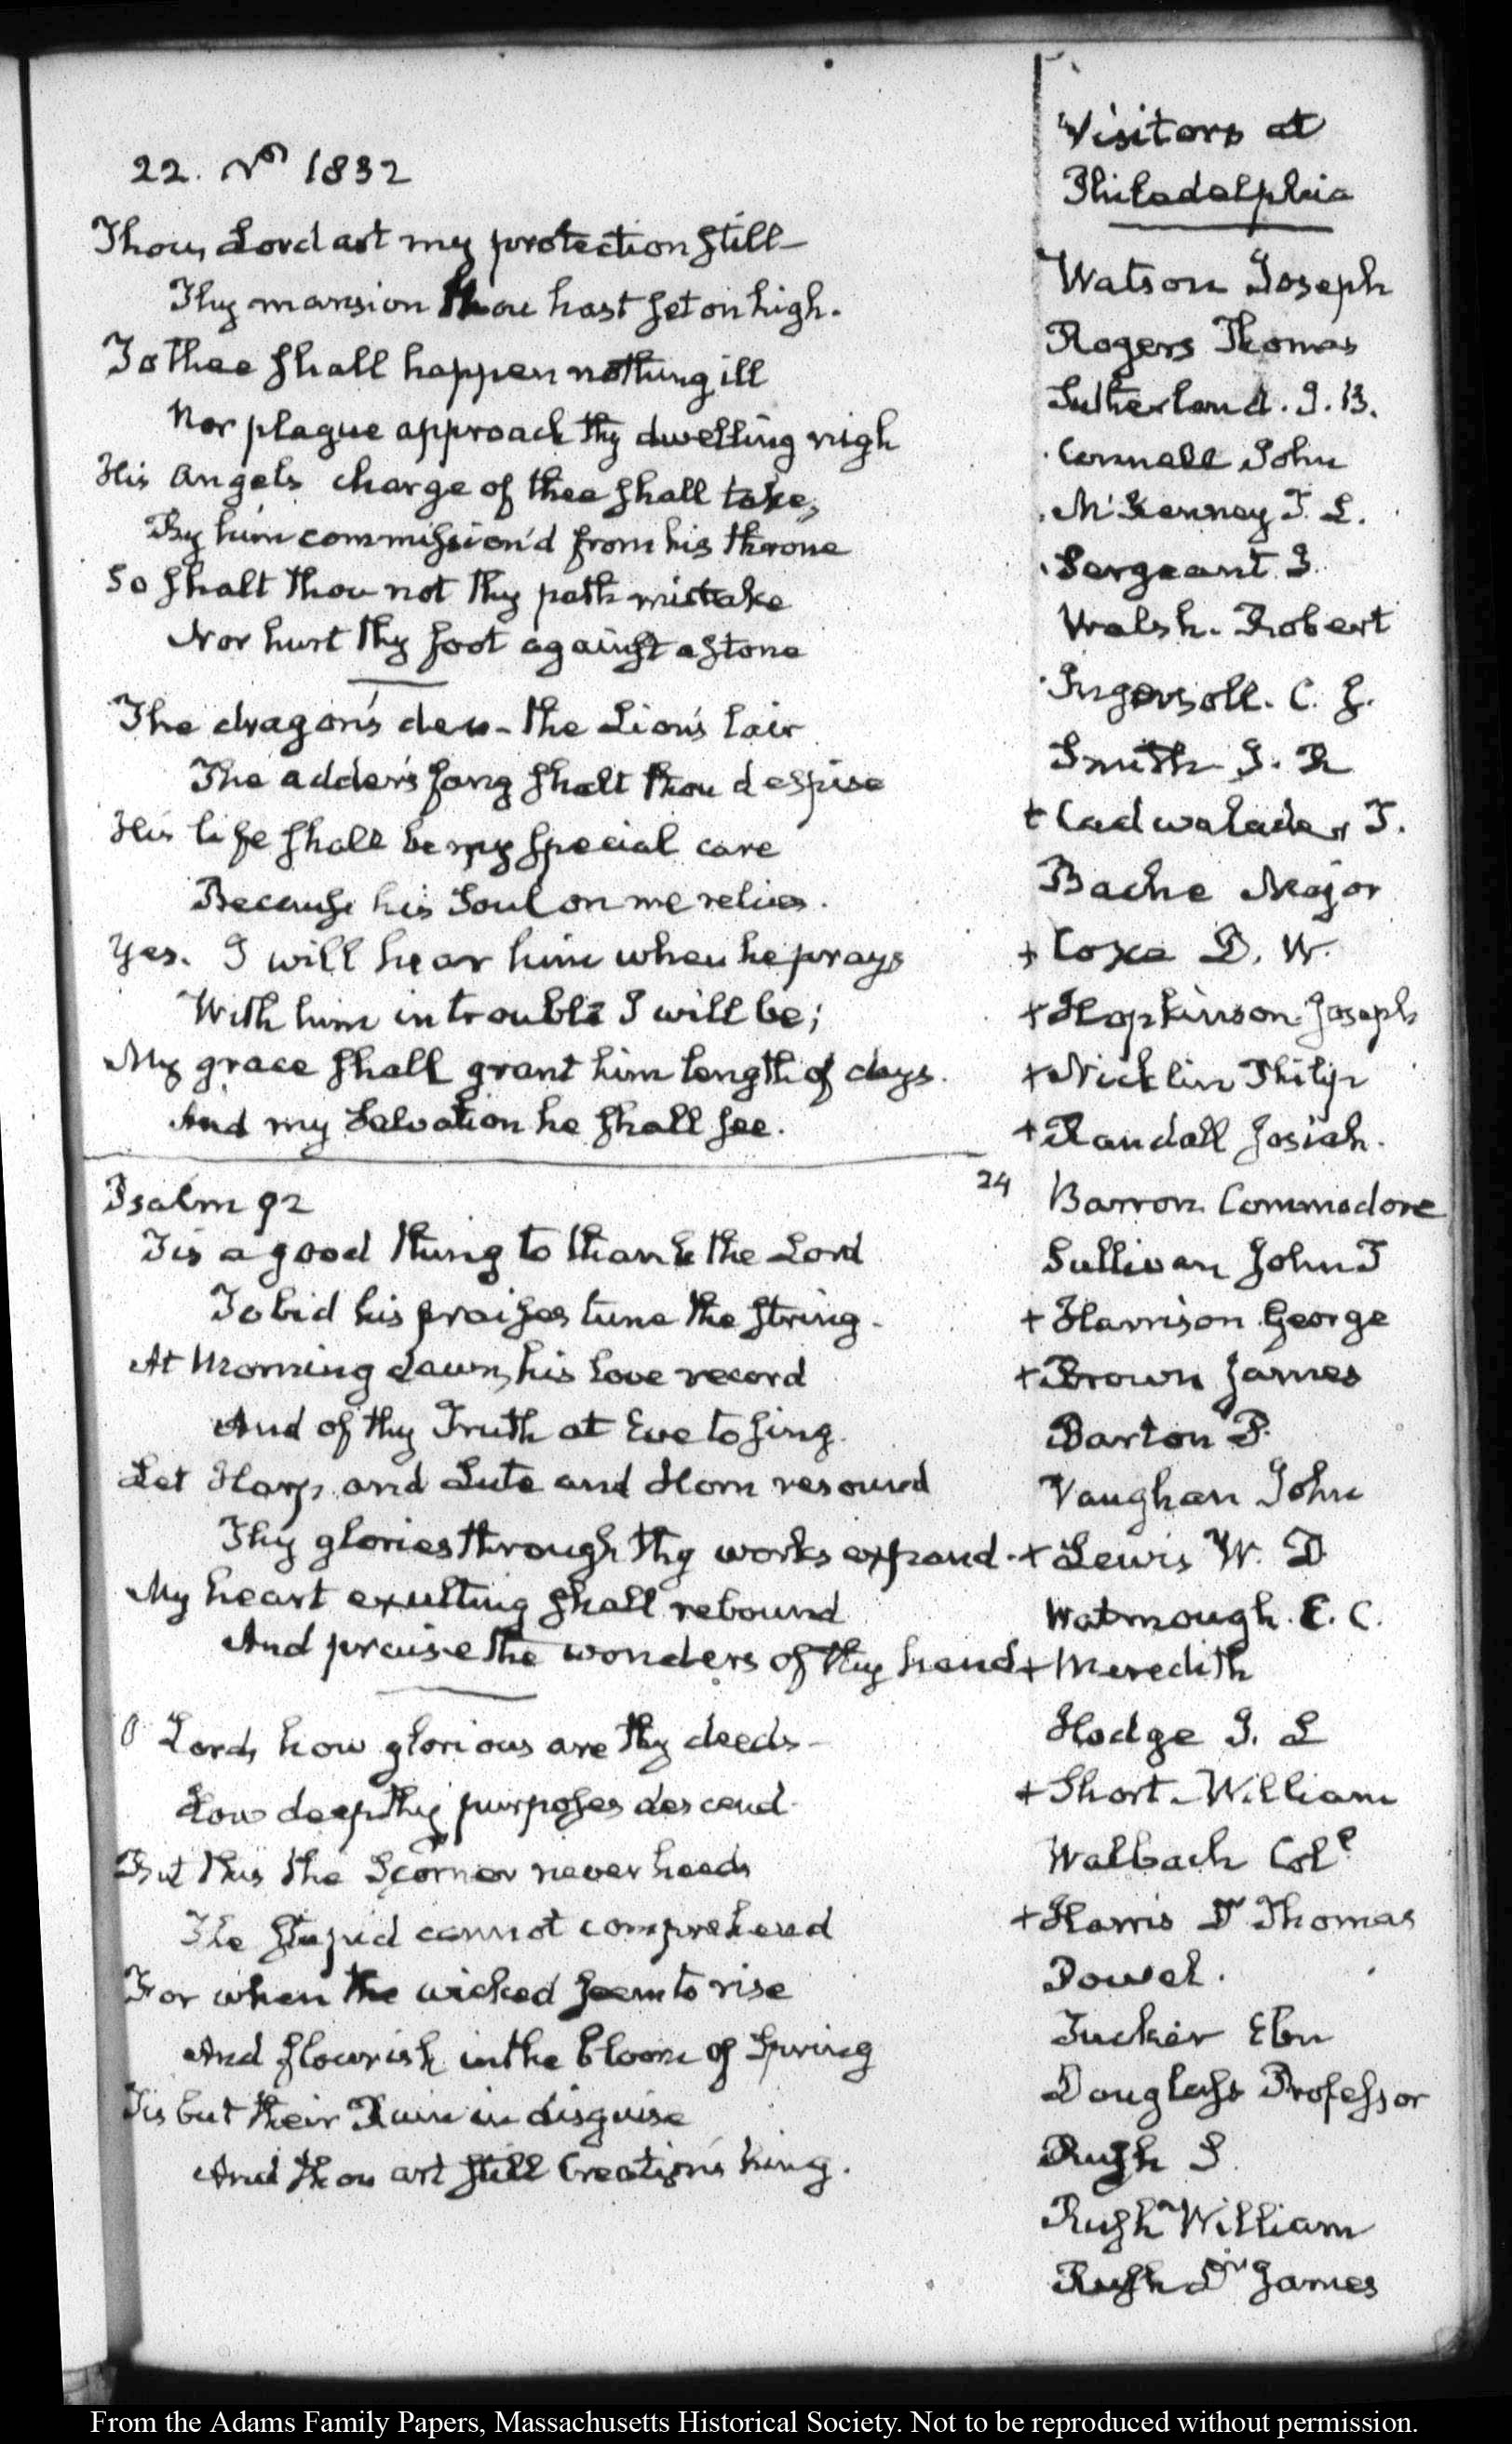 22. No 1832
Thou, Lord art my protection still—
Thy mansion thou hast set on high.
To thee shall happen nothing ill
Nor plague approach thy dwelling nigh
His Angels charge of thee shall take,
By him commission'd from his throne
So shalt thou not thy path mistake
Nor hurt thy foot against a stone
The dragon's den - the Lion's lair
The adder's fang shalt thou despise
His life shall be my special care
Because his Soul on me relies.
Yes. I will hear him when he prays
With him in trouble I will be;
My grace shall grant him length of days.
And my Salvation he shall see.
Psalm 92
Tis a good thing to thank the Lord
To bid his praises tune the string.
At Morning dawn, his love record
And of thy Truth at Eve to sing.
Let Harp, and Lute and Horn resound
Thy glories through thy works expand.
My heart exulting shall rebound
And praise the wonders of thy hand
O Lord, how glorious are thy deeds—
How deep thy purposes descend.
But this the Scorner never heeds
The stupid cannot comprehend
For when the wicked seem to rise
And flourish in the bloom of Spring
Tis but their Ruin in disguise
And thou art still Creation's king.
Visitors at
Philadelphia
Watson Joseph
Rogers Thomas
Sutherland. J. B.
Connell John
McKenney T. L.
Sergeant J.
Walsh. Robert
Ingersoll. C. J.
Smith J. R
+ Cadwalader T.
Bache Major
+ Coxe D. W.
+ Hopkinson Joseph
+ Nicklin Philip
+ Randall Josiah.
24 Barron Commodore
Sullivan John T
+ Harrison George
+ Brown James
Barton B.
Vaughan John
+ Lewis W. D
Watmough. E. C.
+ Meredith
Hodge J. L
+ Short - William
Walbach Coll
+ Harris Dr Thomas
Powel.
Tucker Ebn
Douglass Professor
Rush S.
Rush William
Rush Dr James
From the Adams Family Papers, Massachusetts Historical Society. Not to be reproduced without permission.